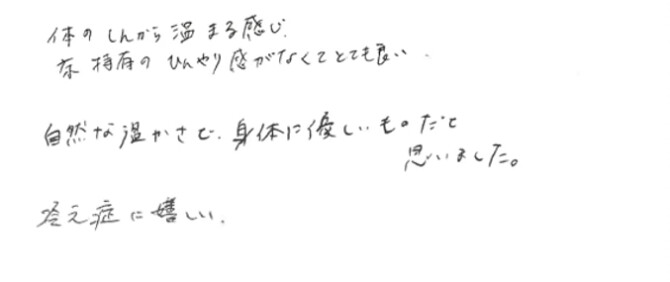 体のしんから温まる感じ.
冬特有のひんやり感がなくてとても良い.
自然な温かさで.身体に優しいものだと
思いました。
冷え症に嬉しい.